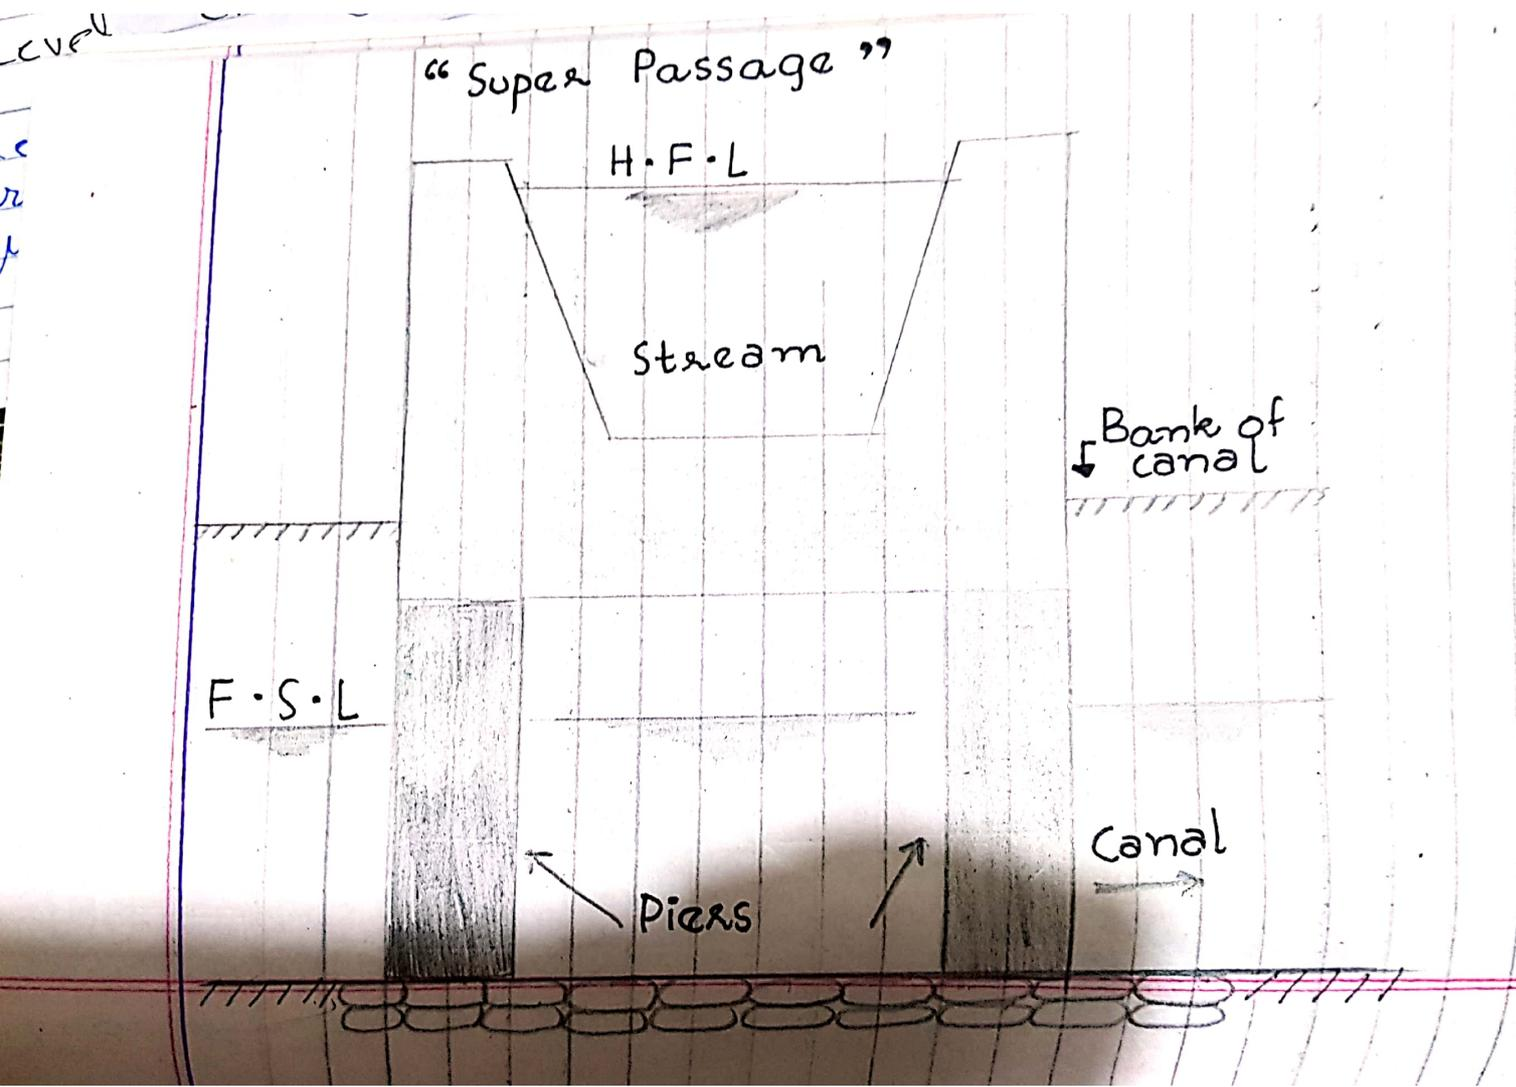 Level
“Super Passage”
H.F.L
Stream
Bank of
canal
F.S.L
Canal
Piers